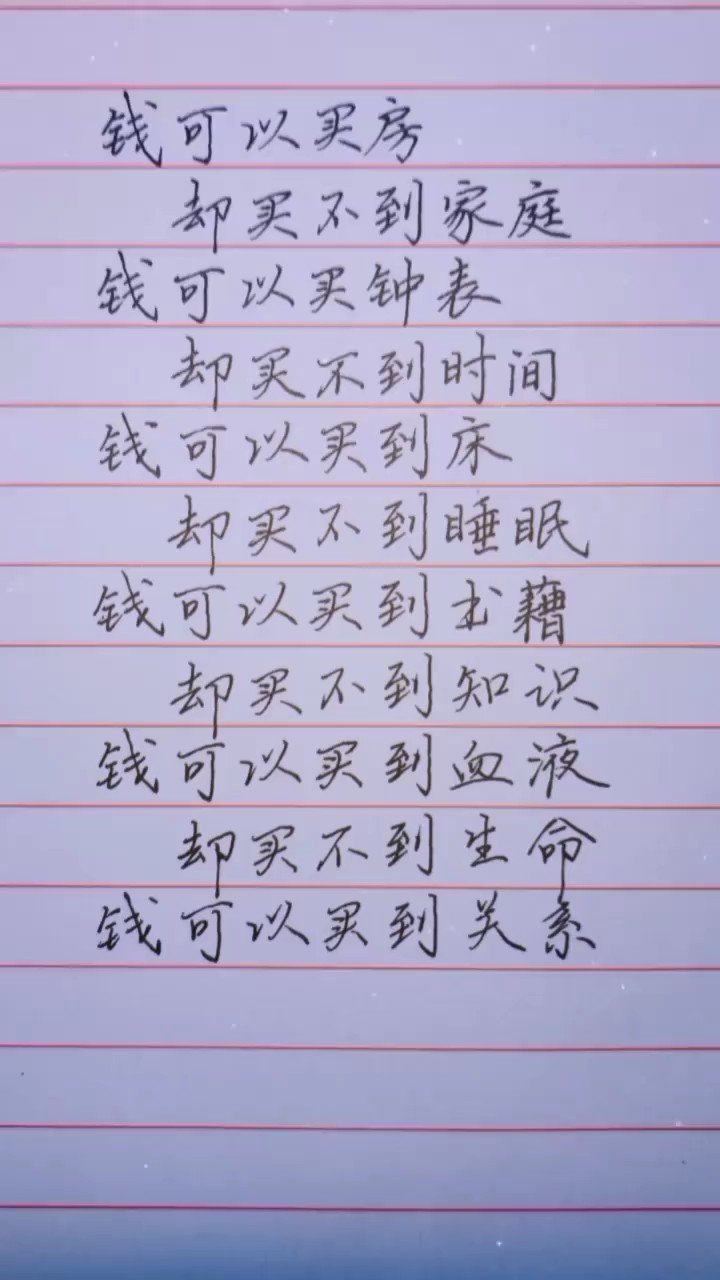 钱可以买房
却买不到家庭
钱可以买钟表
却买不到时间
钱可以买到床
却买不到睡眠
钱可以买到书藉
却买不到知识
钱可以买到血液
却买不到生命
钱可以买到关系